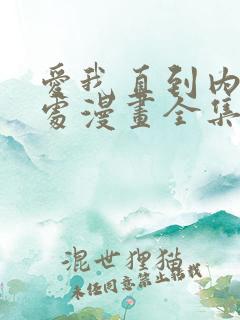 愛我直到內
處漫畫全集
混世狸猫
未经同意禁止转载